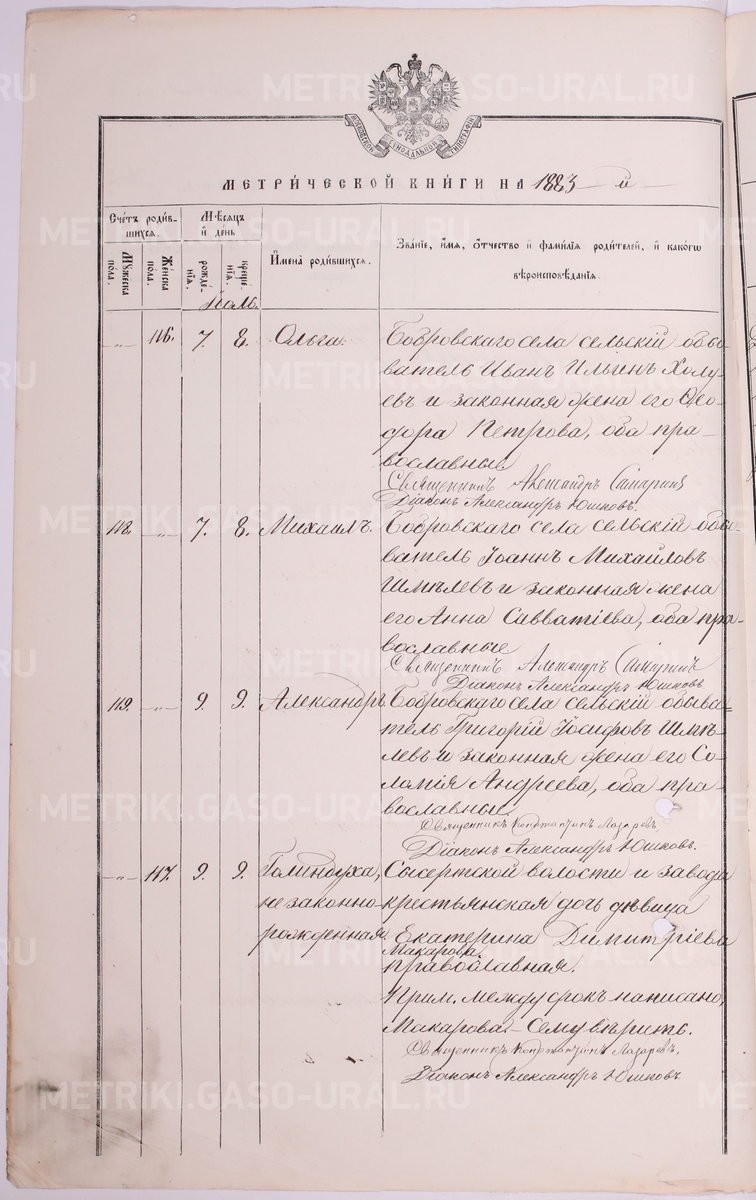 МОСКОВСКОЙ СѴНОДАЛЬНОЙ ТИПОГРАФІИ
МЕТРИ́ЧЕСКОЙ КНИ́ГИ НА 1883 й
Сче́тъ роди́в-
шихсѧ.
М́ѣсѧцъ
и҆ де́нь
Мꙋжеска
по́ла.
Же́нска
по́ла.
рожде́-
нїѧ.
креще́-
нїѧ.
И҆мена̀ роди́вшихсѧ.
Зва́нїе, и҆́мѧ, ѻ҆́тчество и҆ фами́лїѧ роди́телей, и҆ како́гѡ
вѣроисповѣ́данїѧ.
Іюль.
-„- 116. 7. 8. Ольга. Бобровскаго села сельскій обы-
ватель Иванъ Ильинъ Холу-
евъ и законная жена его Ѳео-
дора Петрова, оба пра-
вославные.
Священникъ Александръ
Діаконъ Александръ Юшковъ.
118. -„- 7. 8. Михаилъ. Бобровскаго села сельскій обы-
ватель Іоаннъ Михайловъ
Шмѣлевъ и законная жена
его Анна Савватіева, оба пра-
вославные
Священникъ Александръ
Діаконъ Александръ Юшковъ
119. -„- 9. 9. Александръ Бобровскаго села сельскій обыва-
тель Григорій Іосифовъ Шмѣ-
левъ и законная жена его Со-
ломія Андреева, оба пра-
вославные.
Священникъ Константинъ Лазаревъ,
Діаконъ Александръ Юшковъ.
-„- 117. 9. 9. Голиндуха, Сысертской волости и завода
незаконно крестьянская дочь дѣвица
рожденная. Екатерина Димитріева
Макарова.
православная.
Прим. между строкъ написано,
Макарова. – Сему вѣрить.
Священникъ Константинъ Лазаревъ,
Діаконъ Александръ Юшковъ
METRIKI.GASO-URAL.RU